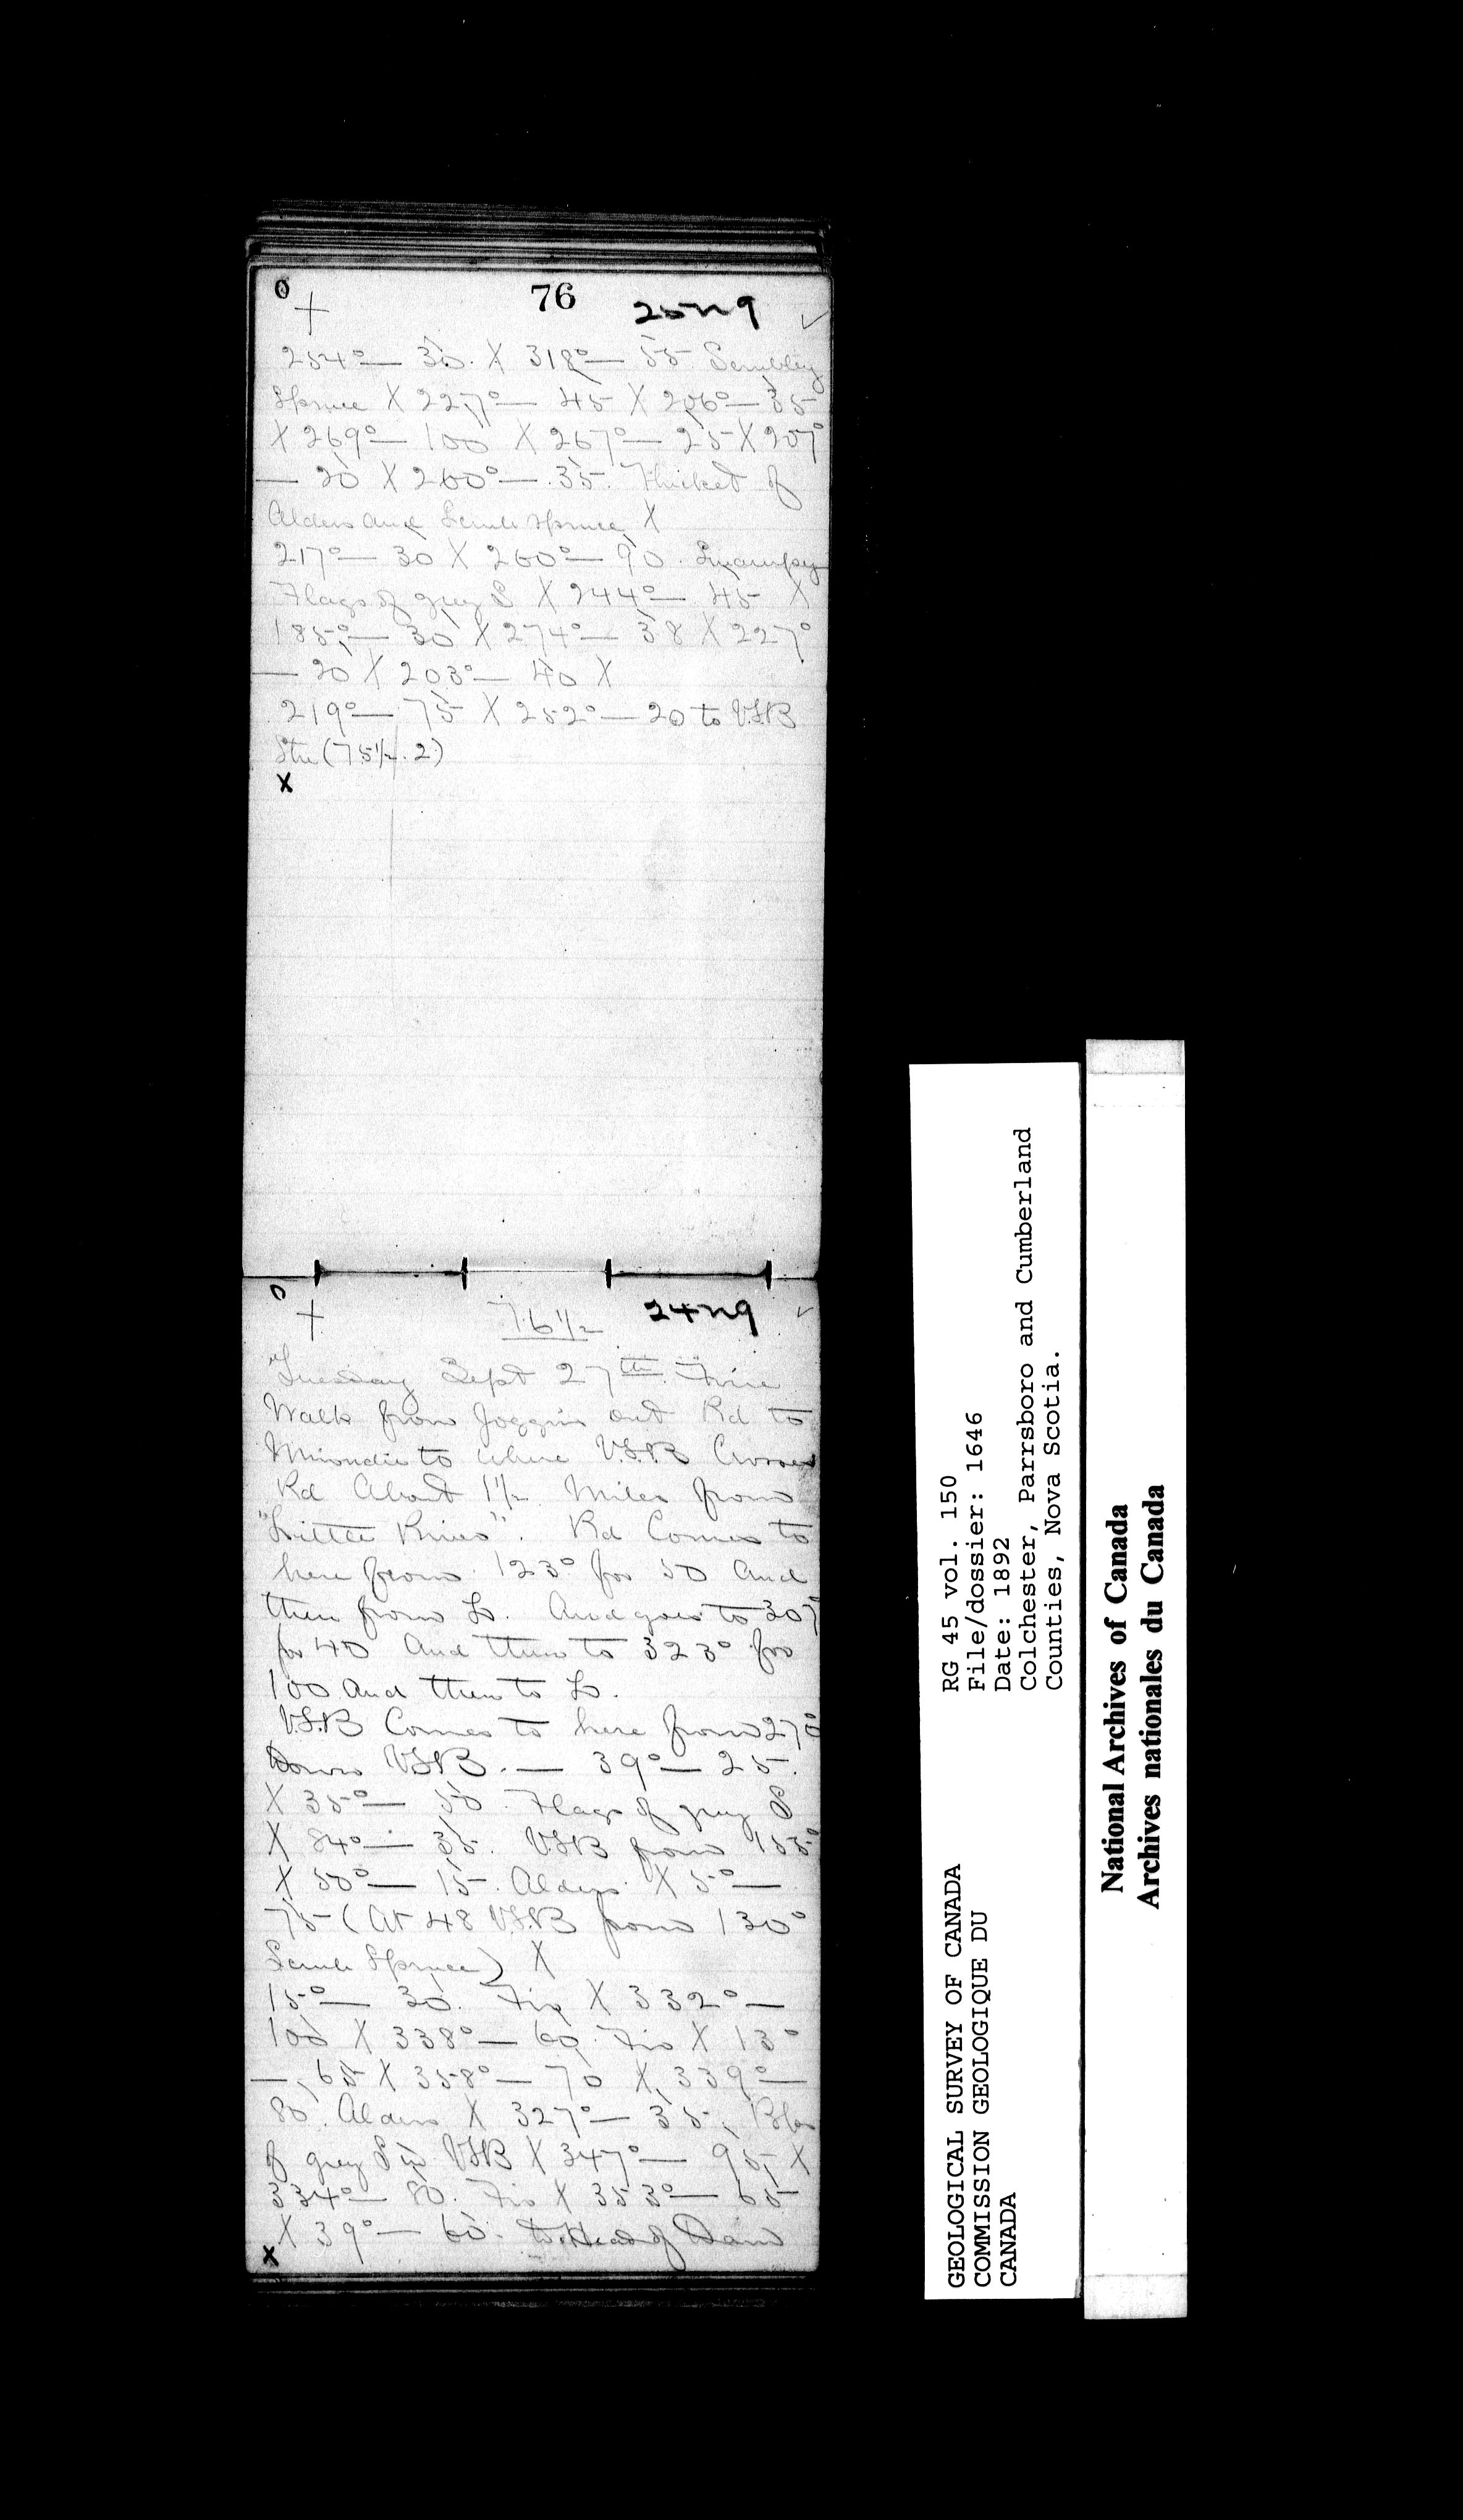 76
25 n 9
254° — 30. X 318° — 55 Scrubby
Spruce X 227° — 45 X 206° — 35
X 269° — 100 X 267° — 25 X 207°
— 20 X 260° — 35. Thicket of
Alders and Scrub Spruce X
217° — 30 X 260° — 90. Swampy
Flags of grey S X 244° — 45 X
185° — 30 X 274° — 38 X 227°
— 20 X 203° — 40 X
219° — 75 X 252° — 20 to V.S.B
Stn (75½.2)
X
76½
24 n 9
Tuesday Sept 27th. Fine
Walk from Joggins out Rd to
Minudie to where V.S.B Crosses
Rd About 1½ Miles from
"Little River". Rd Comes to
here from 123° for 50 And
then from Lo. And goes to 307°
for 40 And then to 323° for
100 And then to Lo.
V.S.B Comes to here from 270°
Down VSB. — 39° — 25.
X 35° — 50. Flags of grey S
X 84° — 35. VSB from 155°
X 50° — 15. Alders. X 5° —
75 (At 48 V.S.B from 130°
Scrub Spruce) X
15° — 30. Fir X 332° —
100 X 338° — 60. Fir X 13°
— 65 X 358° — 70 X 339° —
80. Alders X 327° — 35.
of grey S in VSB X 347° — 95 X
334° — 80. Fir X 353° — 65
X 39° — 60. to Head of Dam
X
GEOLOGICAL SURVEY OF CANADA
COMMISSION GEOLOGIQUE DU
CANADA
RG 45 vol. 150
File/dossier: 1646
Date: 1892
Colchester, Parrsboro and Cumberland
Counties, Nova Scotia.
National Archives of Canada
Archives nationales du Canada